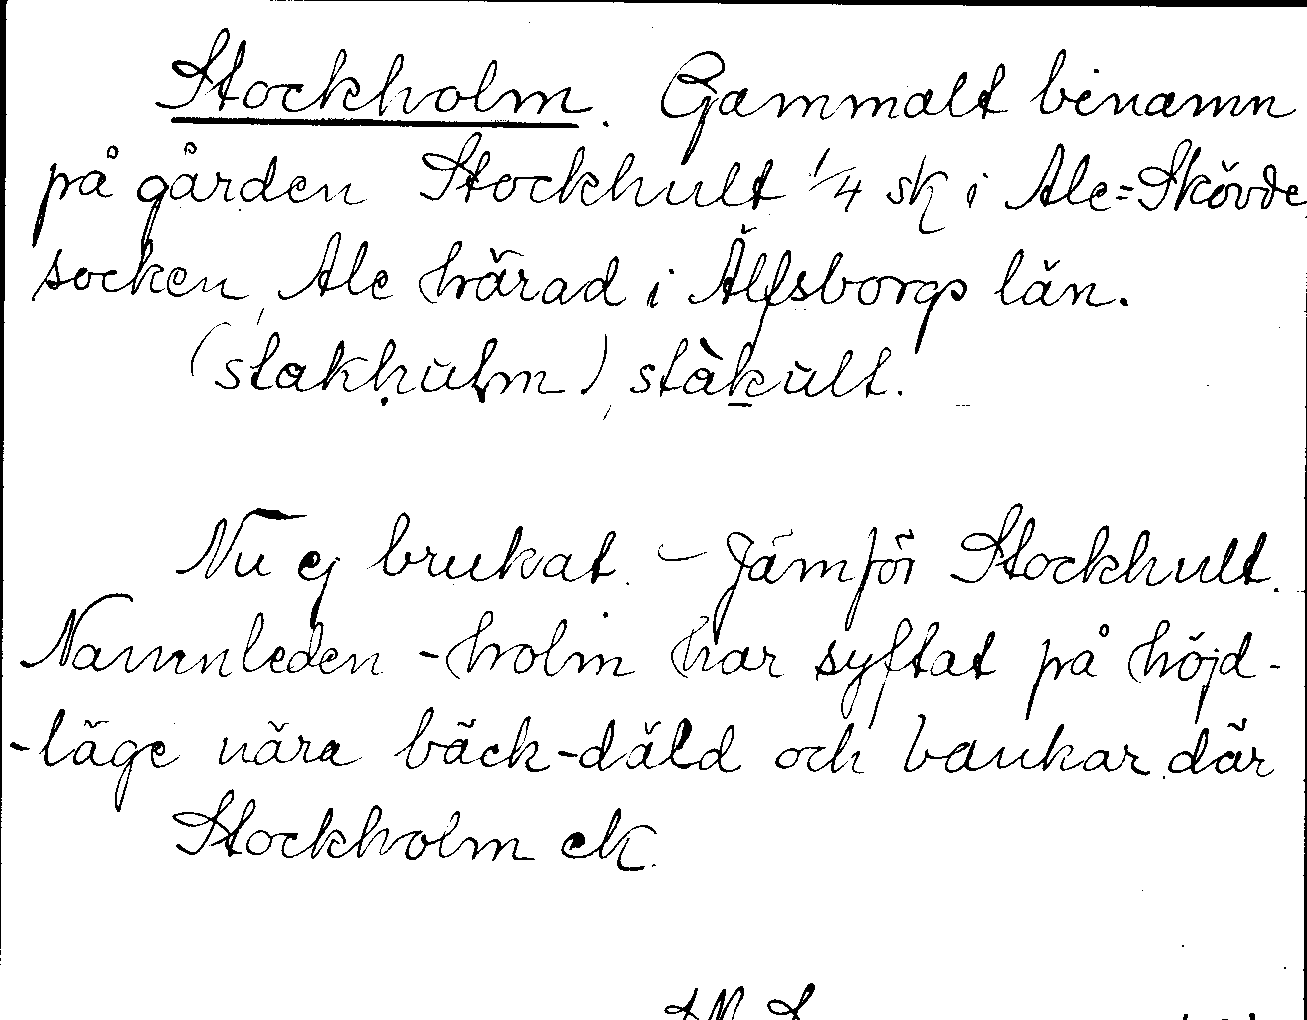 Stockholm. Gammalt binamn
på gården Stockhult 1/4 sk i Ale=Skövde
socken, Ale härad i Älfsborgs län.
(stakhulm), stàkult.
Nu ej brukat. – Jämför Stockhult.
Namnleden -holm har syftat på höjd-
-läge nära bäck-däld och bankar där
Stockholm ek.